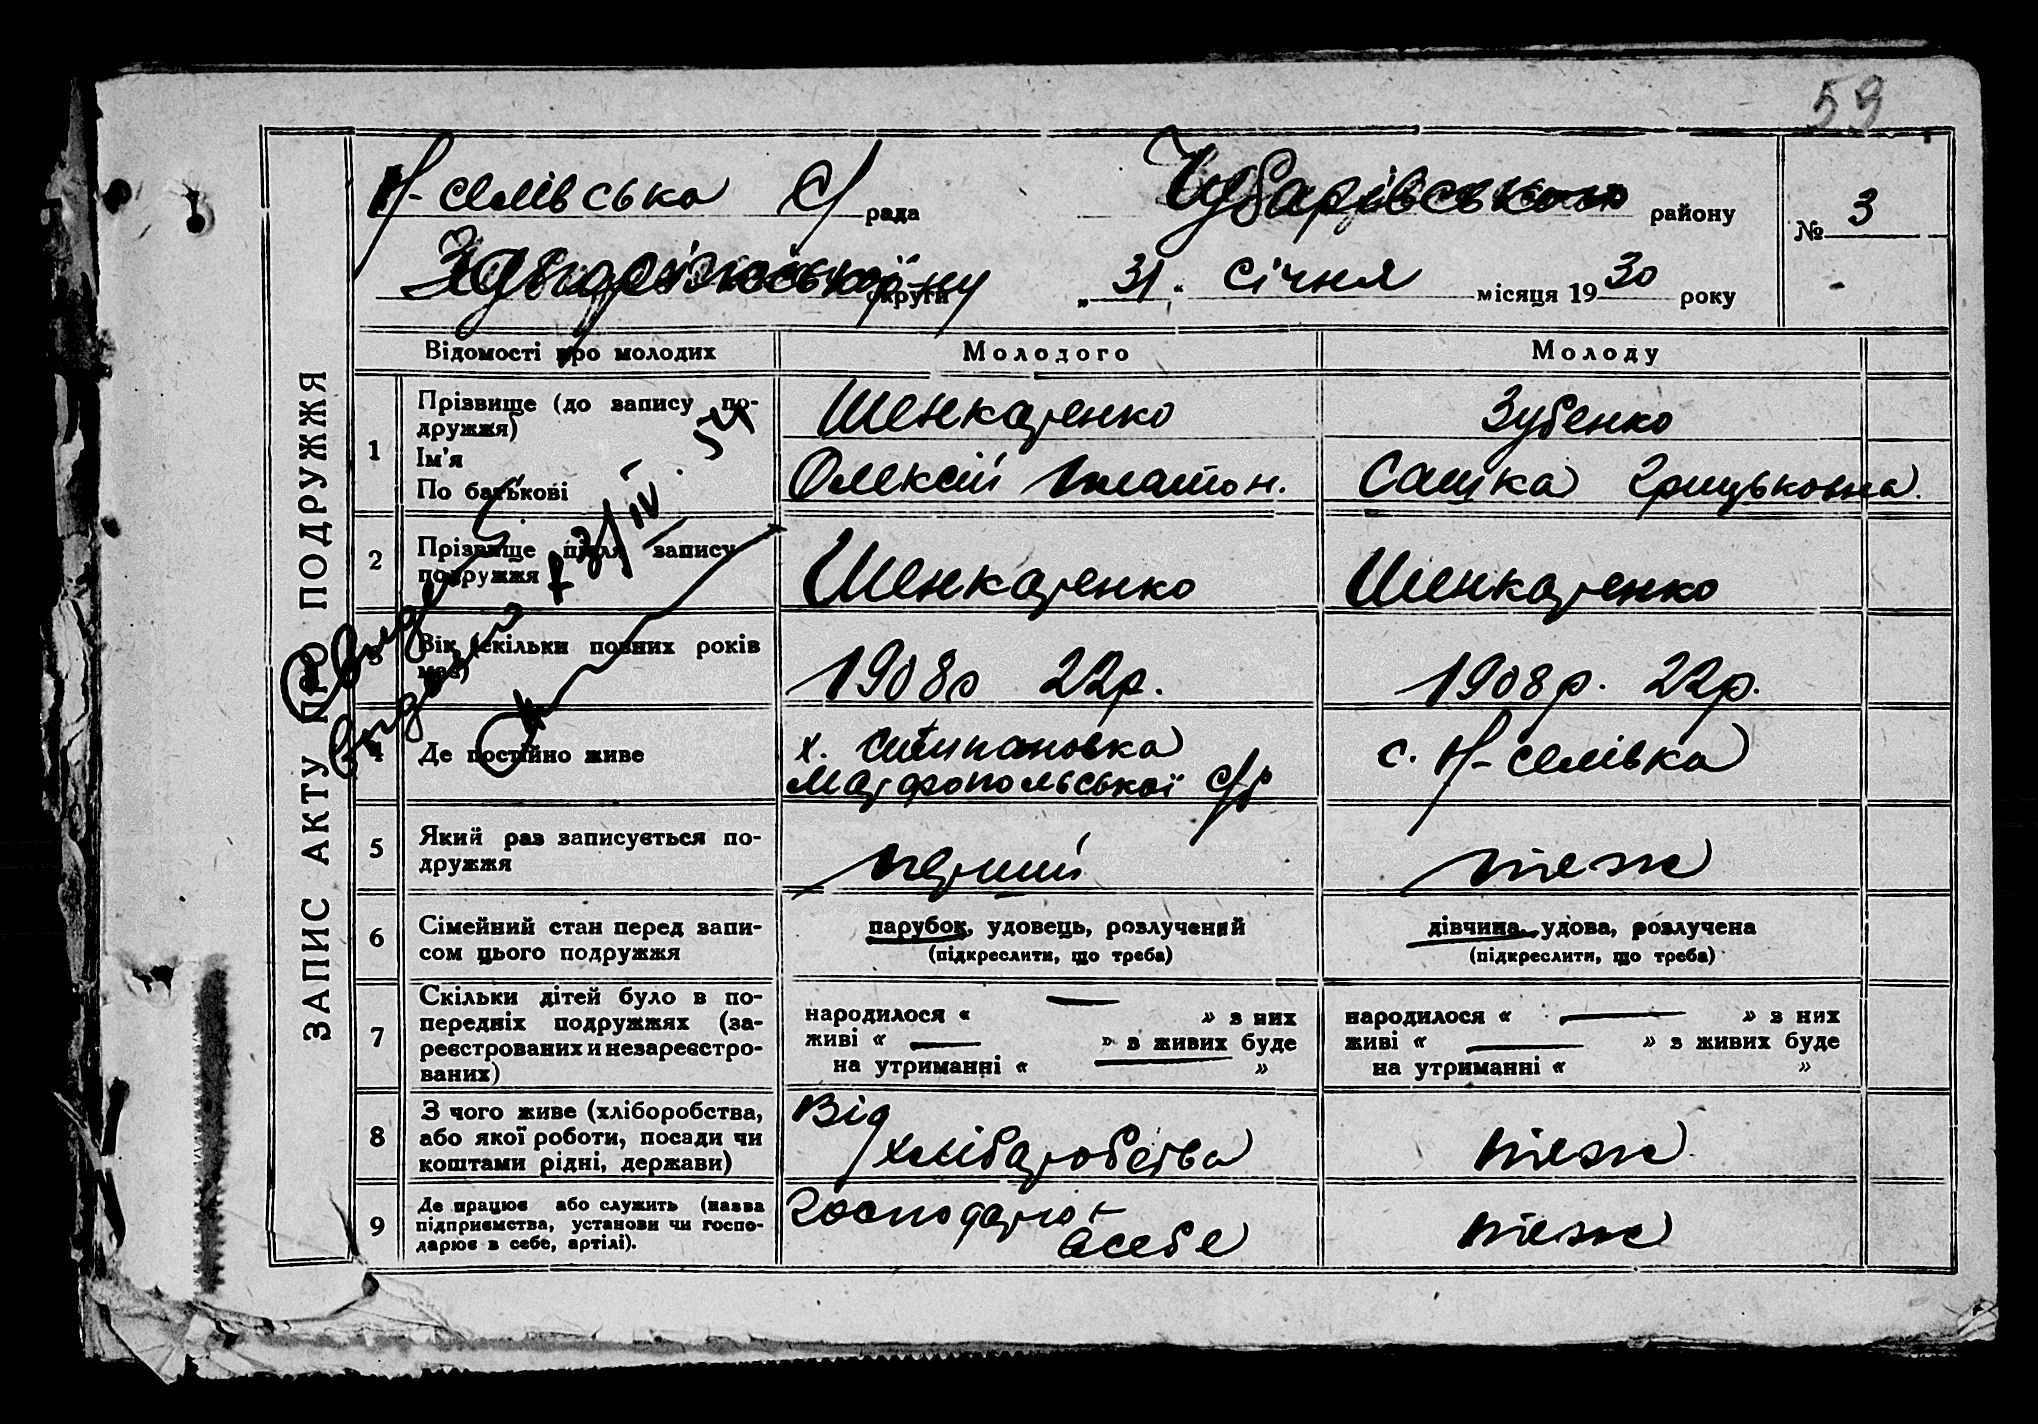 59
Н-селівська с/ рада Чубарівського району № 3
Запорізької округи „31“ січня місяця 1930 року
ЗАПИС АКТУ ПРО ПОДРУЖЖЯ
Відомості про молодих Молодого Молоду
1 Прізвище (до запису по-
дружжя)
Ім'я
По батькові
Шенкаренко
Олексій Платон.
Зубенко
Сашка Грицьковна
2 Прізвище після запису
подружжя
Шенкаренко
Шенкаренко
3 Вік (скільки повних років
має)
1908р 22р.
1908р. 22р.
4 Де постійно живе
х.
Марфопольської с/р
с. Н-селівка
5 Який раз записується по-
дружжя
перший
теж
6 Сімейний стан перед запи-
сом цього подружжя
парубок, удовець, розлучений
(підкреслити, що треба)
дівчина, удова, розлучена
(підкреслити, що треба)
7 Скільки дітей було в по-
передніх подружжях (за-
реєстрованих и незареєстро-
ваних)
народилося « — » з них
живі « — » з живих буде
на утриманні « — »
народилося « — » з них
живі « — » з живих буде
на утриманні « »
8 З чого живе (хліборобства,
або якої роботи, посади чи
коштами рідні, держави)
Від
хліборобства
теж
9 Де працює або служить (назва
підприємства, установи чи госпо-
дарює в себе, артілі).
Господарю
в себе
теж